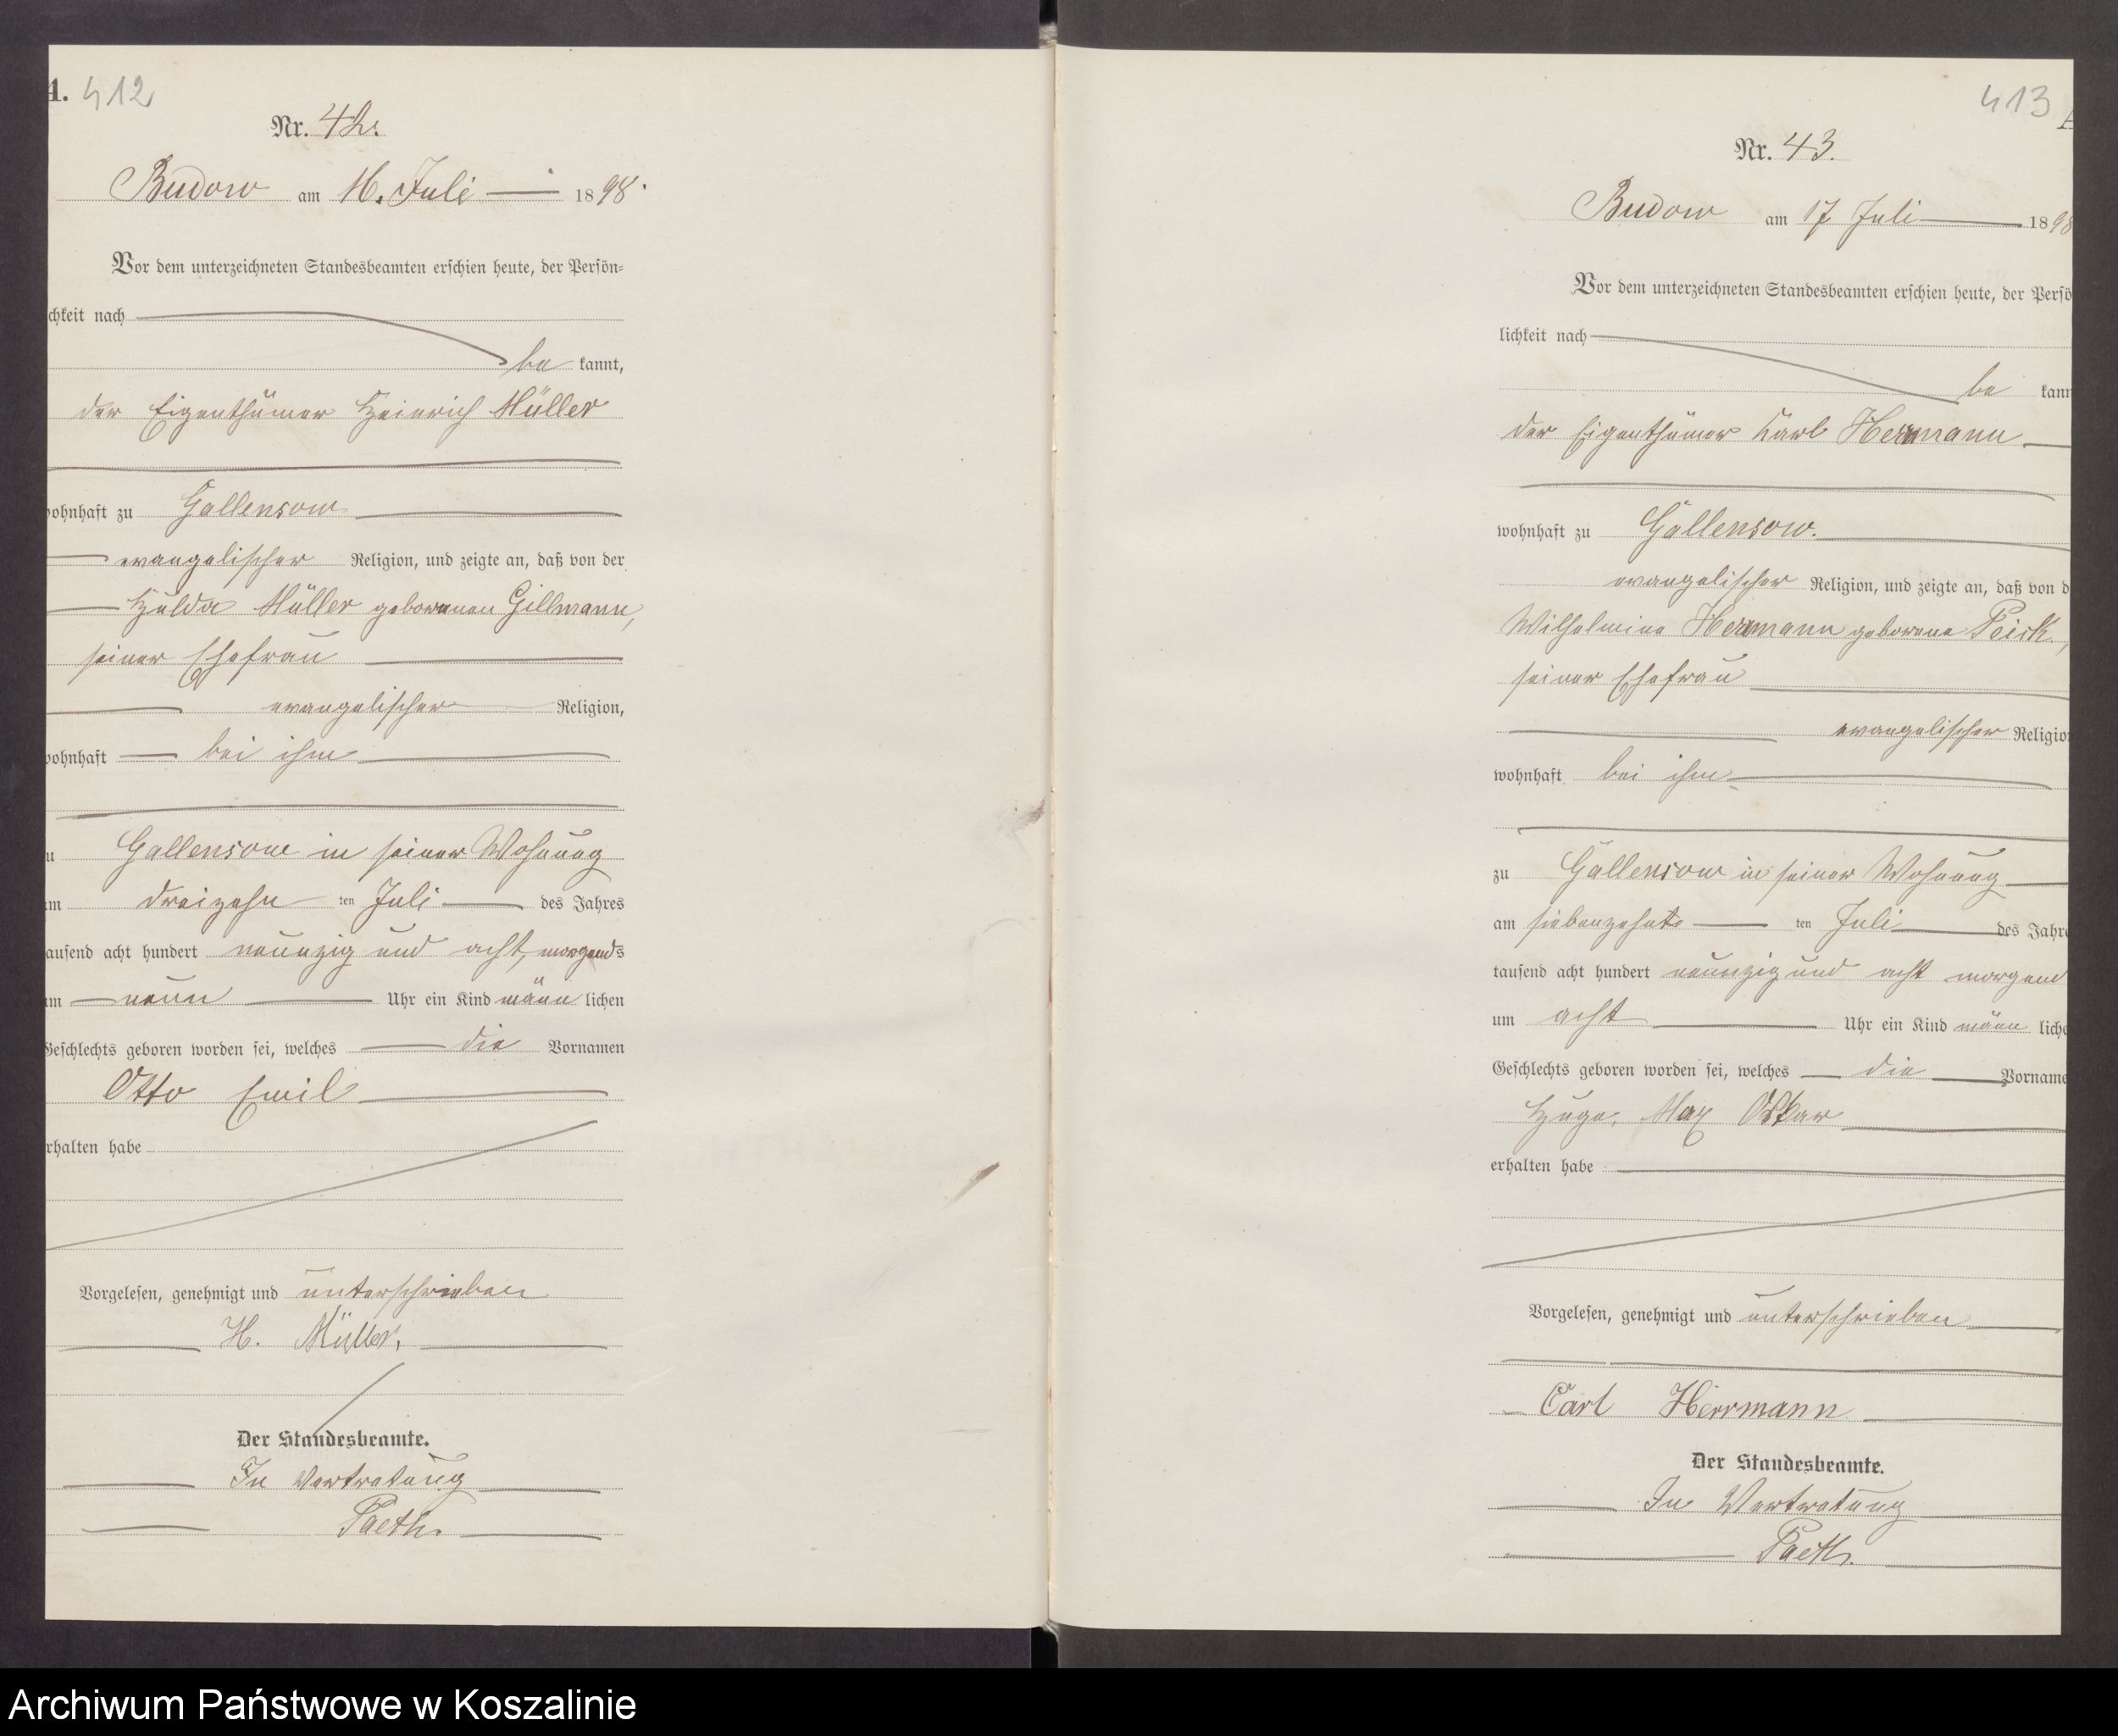 A.
412
Nr. 42.
Budow am 16. Juli 1898.
Vor dem unterzeichneten Standesbeamten erschien heute, der Persön=
chkeit nach
be kannt,
der Eigenthümer Heinrich Müller
ohnhaft zu Gallensow
evangelischer Religion, und zeigte an, daß von der
Hulda Müller geborenen Gillmann,
seiner Ehefrau
evangelischer Religion,
ohnhaft bei ihm
u Gallensow in seiner Wohnung
m dreizehn ten Juli des Jahres
ausend acht hundert neunzig und acht, morgends
m neun Uhr ein Kind männ lichen
Geschlechts geboren worden sei, welches die Vornamen
Otto Emil
rhalten habe
Vorgelesen, genehmigt und unterschrieben
H. Müller.
Der Standesbeamte.
In Vertretung
Paeth.
413
Nr. 43.
Budow am 17 Juli 1898
Vor dem unterzeichneten Standesbeamten erschien heute, der Persö
lichkeit nach
be kann
der Eigenthümer Karl Herrmann
wohnhaft zu Gallensow.
evangelischer Religion, und zeigte an, daß von d
Wilhelmine Herrmann geborene Peick,
seiner Ehefrau
evangelischer Religio
wohnhaft bei ihm
zu Gallensow in seiner Wohnung
am siebenzehnte ten Juli des Jahre
tausend acht hundert neunzig und acht morgend
um acht Uhr ein Kind männ liche
Geschlechts geboren worden sei, welches die Vorname
Hugo, Max Oskar
erhalten habe
Vorgelesen, genehmigt und unterschrieben
Carl Herrmann
Der Standesbeamte.
In Vertretung
Paeth.
Archiwum Państwowe w Koszalinie